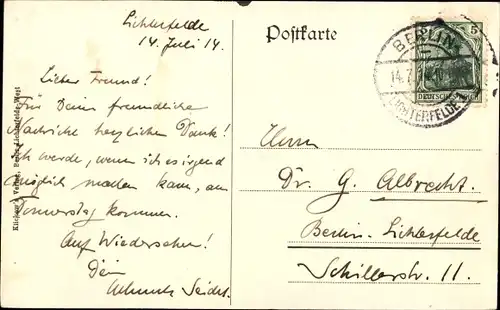 Lichterfelde
14. Juli 14.
Lieber Freund!
Für Deine freundliche
Nachricht herzlichen Dank!
Ich werde, wenn ich es irgend
möglich machen kann, am
Donnerstag kommen.
Auf Wiedersehen!
Dein
Postkarte
5
BERLIN
14.7.
LICHTERFELDE 1
DEUTSCHES REICH
Herrn
Dr. G. Albrecht.
Berlin-Lichterfelde
Schillerstr. 11.
Lichterfelde-West